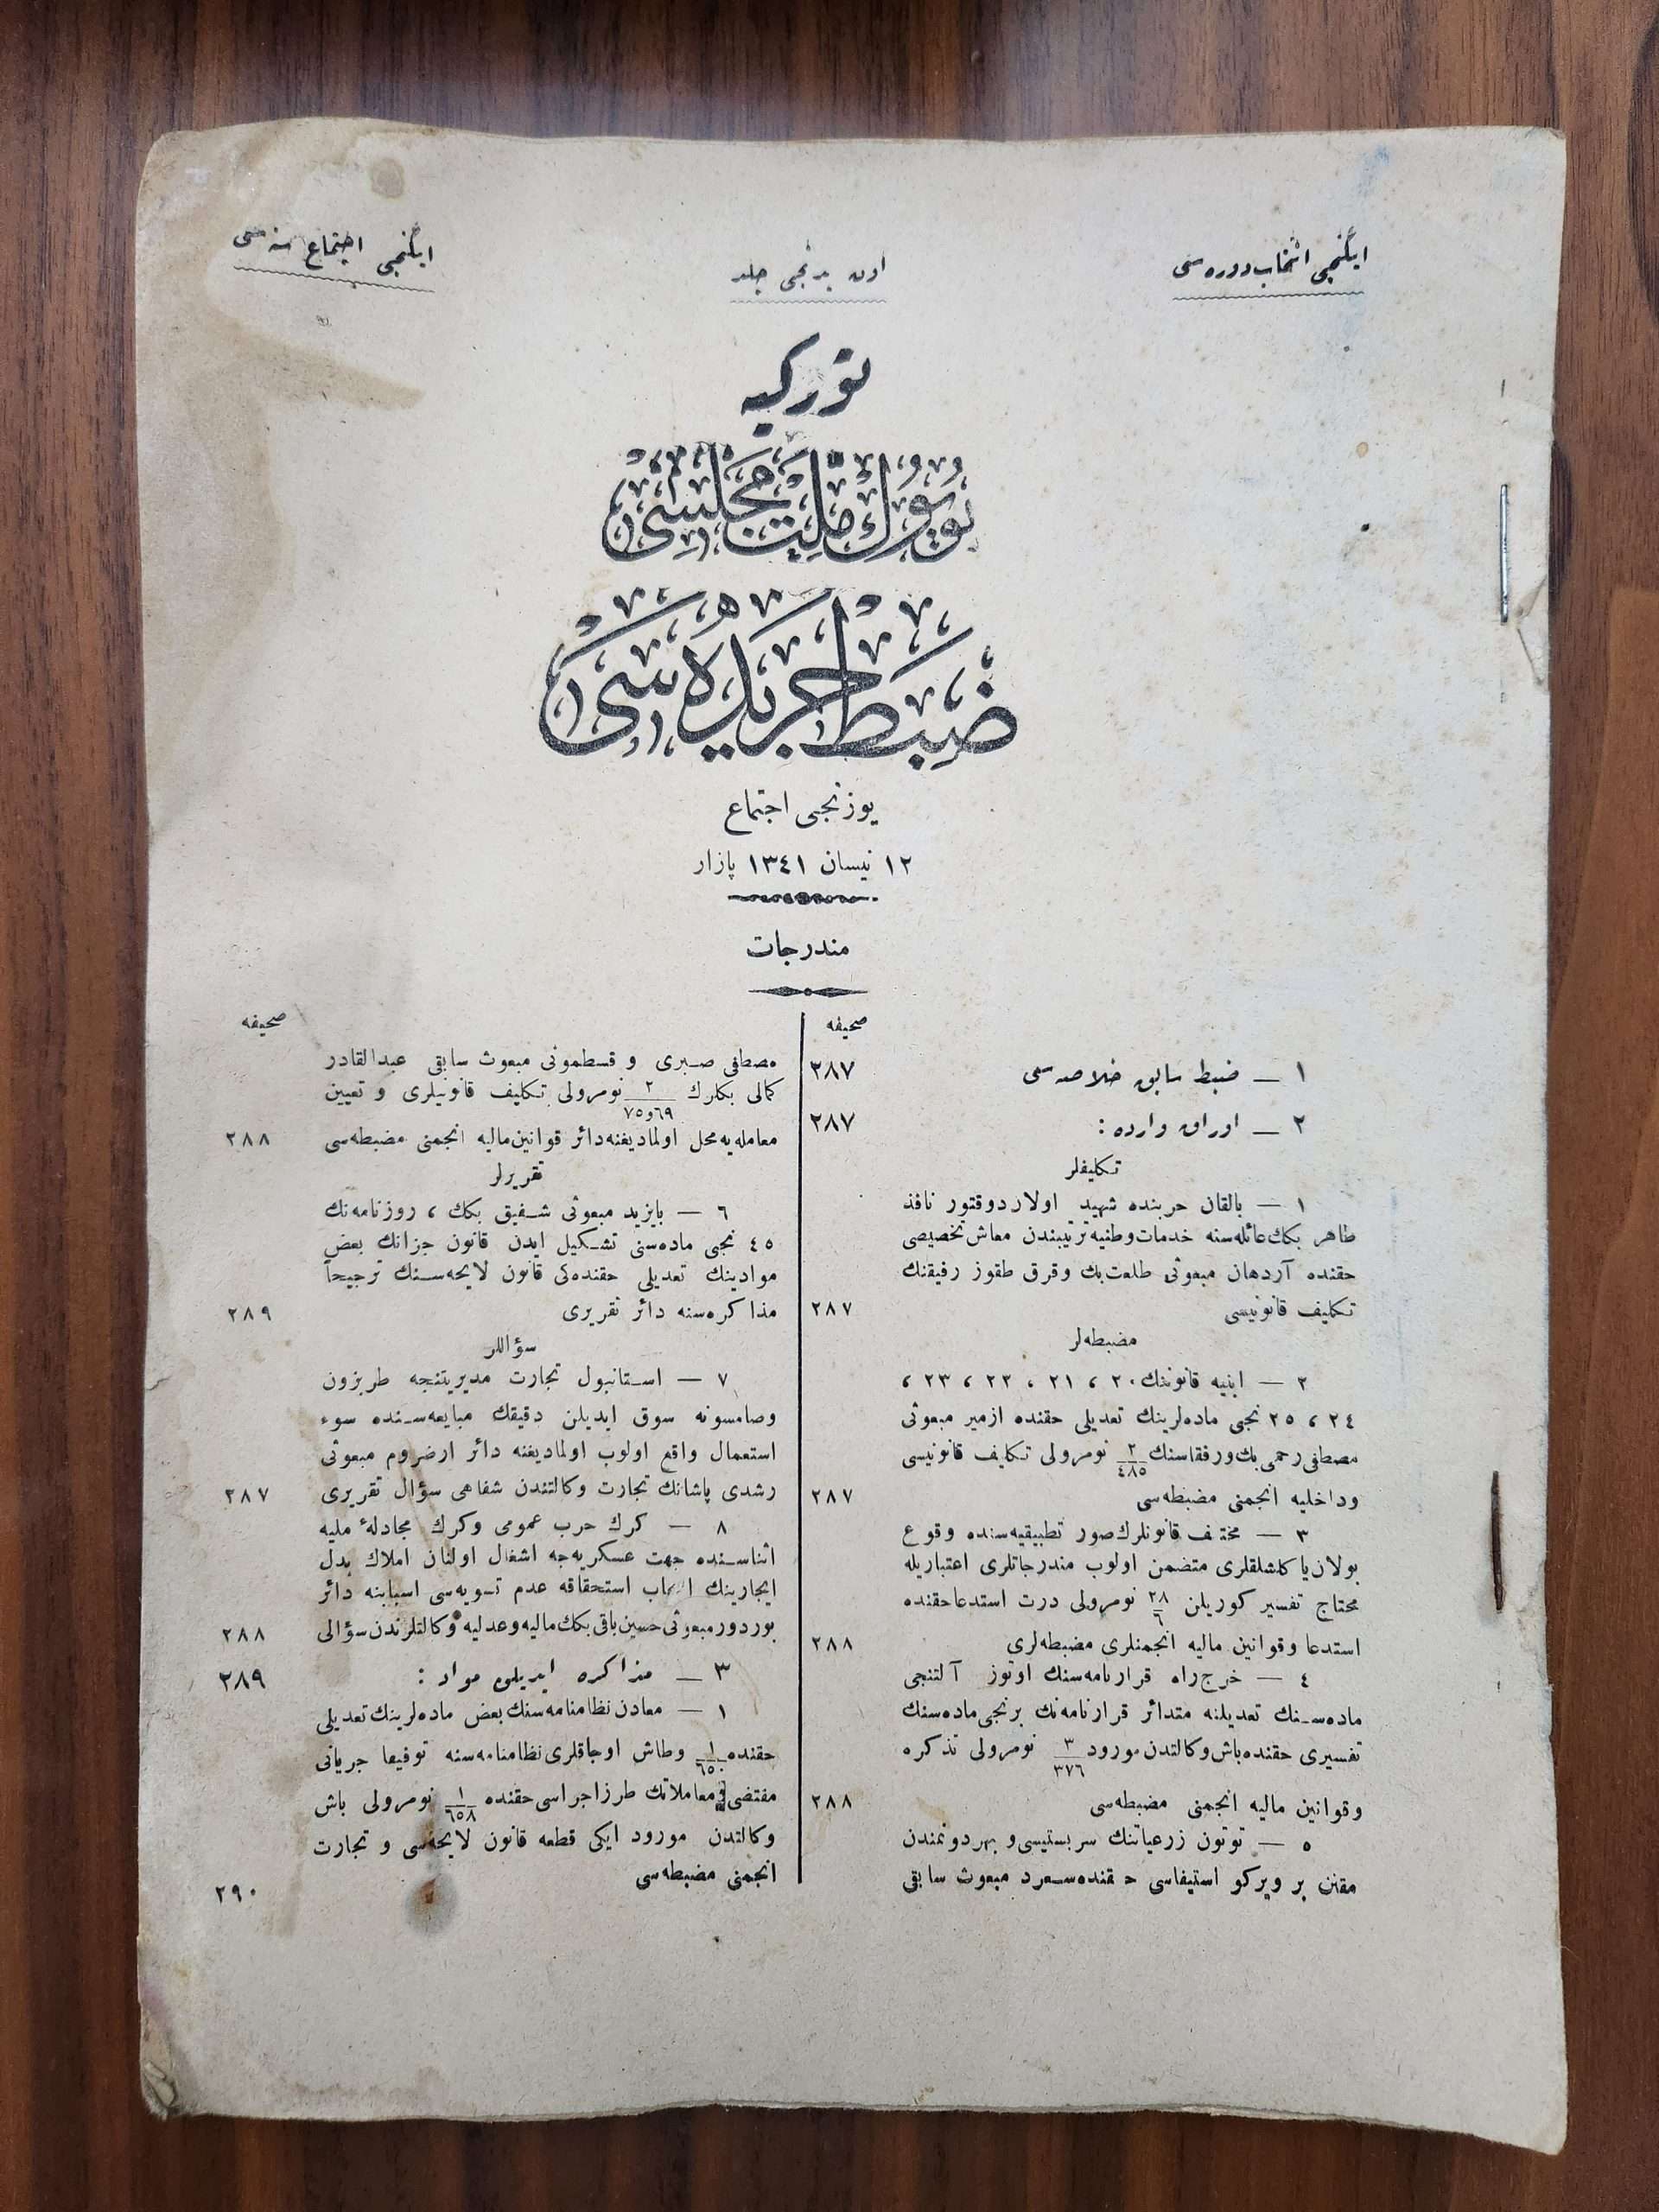 ایكنجی انتخاب دوره سی
اون برنجی جلد
ایكنجی اجتماع سنه سی
توركیه
بویوك ملت مجلسی
ضبط جریده سی
یوزنجی اجتماع
١٢ نیسان ١٣٤١ پازار
مندرجات
صحیفه
١ — ضبط سابق خلاصه سی ٢٨٧
٢ — اوراق وارده : ٢٨٧
تكلیفلر
١ — بالقان حربنده شهید اولان دوقتور نافذ
طاهر بكك عائله سنه خدمات وطنیه ترتیبندن معاش تخصیصی
حقنده آردهان مبعوثی طلعت بك وقرق طقوز رفیقنك
تكلیف قانونیسی ٢٨٧
مضبطه لر
٢ — ابنیه قانوننك ٢٠ ، ٢١ ، ٢٢ ، ٢٣ ،
٢٤ ، ٢٥ نجی ماده لرینك تعدیلی حقنده ازمیر مبعوثی
مصطفی رحمی بك ورفقاسنك ٢/٤٨٥ نومرولی تكلیف قانونیسی
وداخلیه انجمنی مضبطه سی ٢٨٧
٣ — مختلف قانونلرك صور تطبیقیه سنده وقوع
بولان یاكلشلقلری متضمن اولوب مندرجاتلری اعتباریله
محتاج تفسیر كوریلن ٢٨/٦ نومرولی درت استدعا حقنده
استدعا وقوانین مالیه انجمنلری مضبطه لری ٢٨٨
٤ — خرج راه قرارنامه سنك اوتوز آلتنجی
ماده سنك تعدیلنه متدائر قرارنامه نك برنجی ماده سنك
تفسیری حقنده باش وكالتدن مورود ٣/٣٧٦ نومرولی تذكره
وقوانین مالیه انجمنی مضبطه سی ٢٨٨
٥ — توتون زرعیاتنك سربستیسی و بهر دونمندن
مقنن بر ویركو استیفاسی حقنده سعرد مبعوث سابقی
صحیفه
مصطفی صبری و قسطمونی مبعوث سابقی عبدالقادر
كمالی بكلرك ٢/٦٩و٧٥ نومرولی تكلیف قانونیلری و تعیین
معامله یه محل اولمادیغنه دائر قوانین مالیه انجمنی مضبطه سی ٢٨٨
تقریرلر
٦ — بایزید مبعوثی شفیق بكك ، روزنامه نك
٤٥ نجی ماده سنی تشكیل ایدن قانون جزانك بعض
موادینك تعدیلی حقنده كی قانون لایحه سنك ترجیحاً
مذاكره سنه دائر تقریری ٢٨٩
سؤاللر
٧ — استانبول تجارت مدیریتنجه طربزون
وصامسونه سوق ایدیلن دقیقك مبایعه سنده سوء
استعمال واقع اولوب اولمادیغنه دائر ارضروم مبعوثی
رشدی پاشانك تجارت وكالتندن شفاهی سؤال تقریری ٢٨٧
٨ — كرك حرب عمومی وكرك مجادلهٔ ملیه
اثناسنده جهت عسكریه جه اشغال اولنان املاك بدل
ایجارینك اصحاب استحقاقه عدم تسویه سی اسبابنه دائر
بوردور مبعوثی حسین باقی بكك مالیه وعدلیه وكالتلرندن سؤالی ٢٨٨
٣ — مذاكره ایدیلن مواد : ٢٨٩
١ — معادن نظامنامه سنك بعض ماده لرینك تعدیلی
حقنده ١/٦٥٠ وطاش اوجاقلری نظامنامه سنه توفیقا جریانی
مقتضی معاملاتك طرز اجراسی حقنده ١/٦٥٨ نومرولی باش
وكالتدن مورود ایكی قطعه قانون لایحه سی و تجارت
انجمنی مضبطه سی ٢٩٠